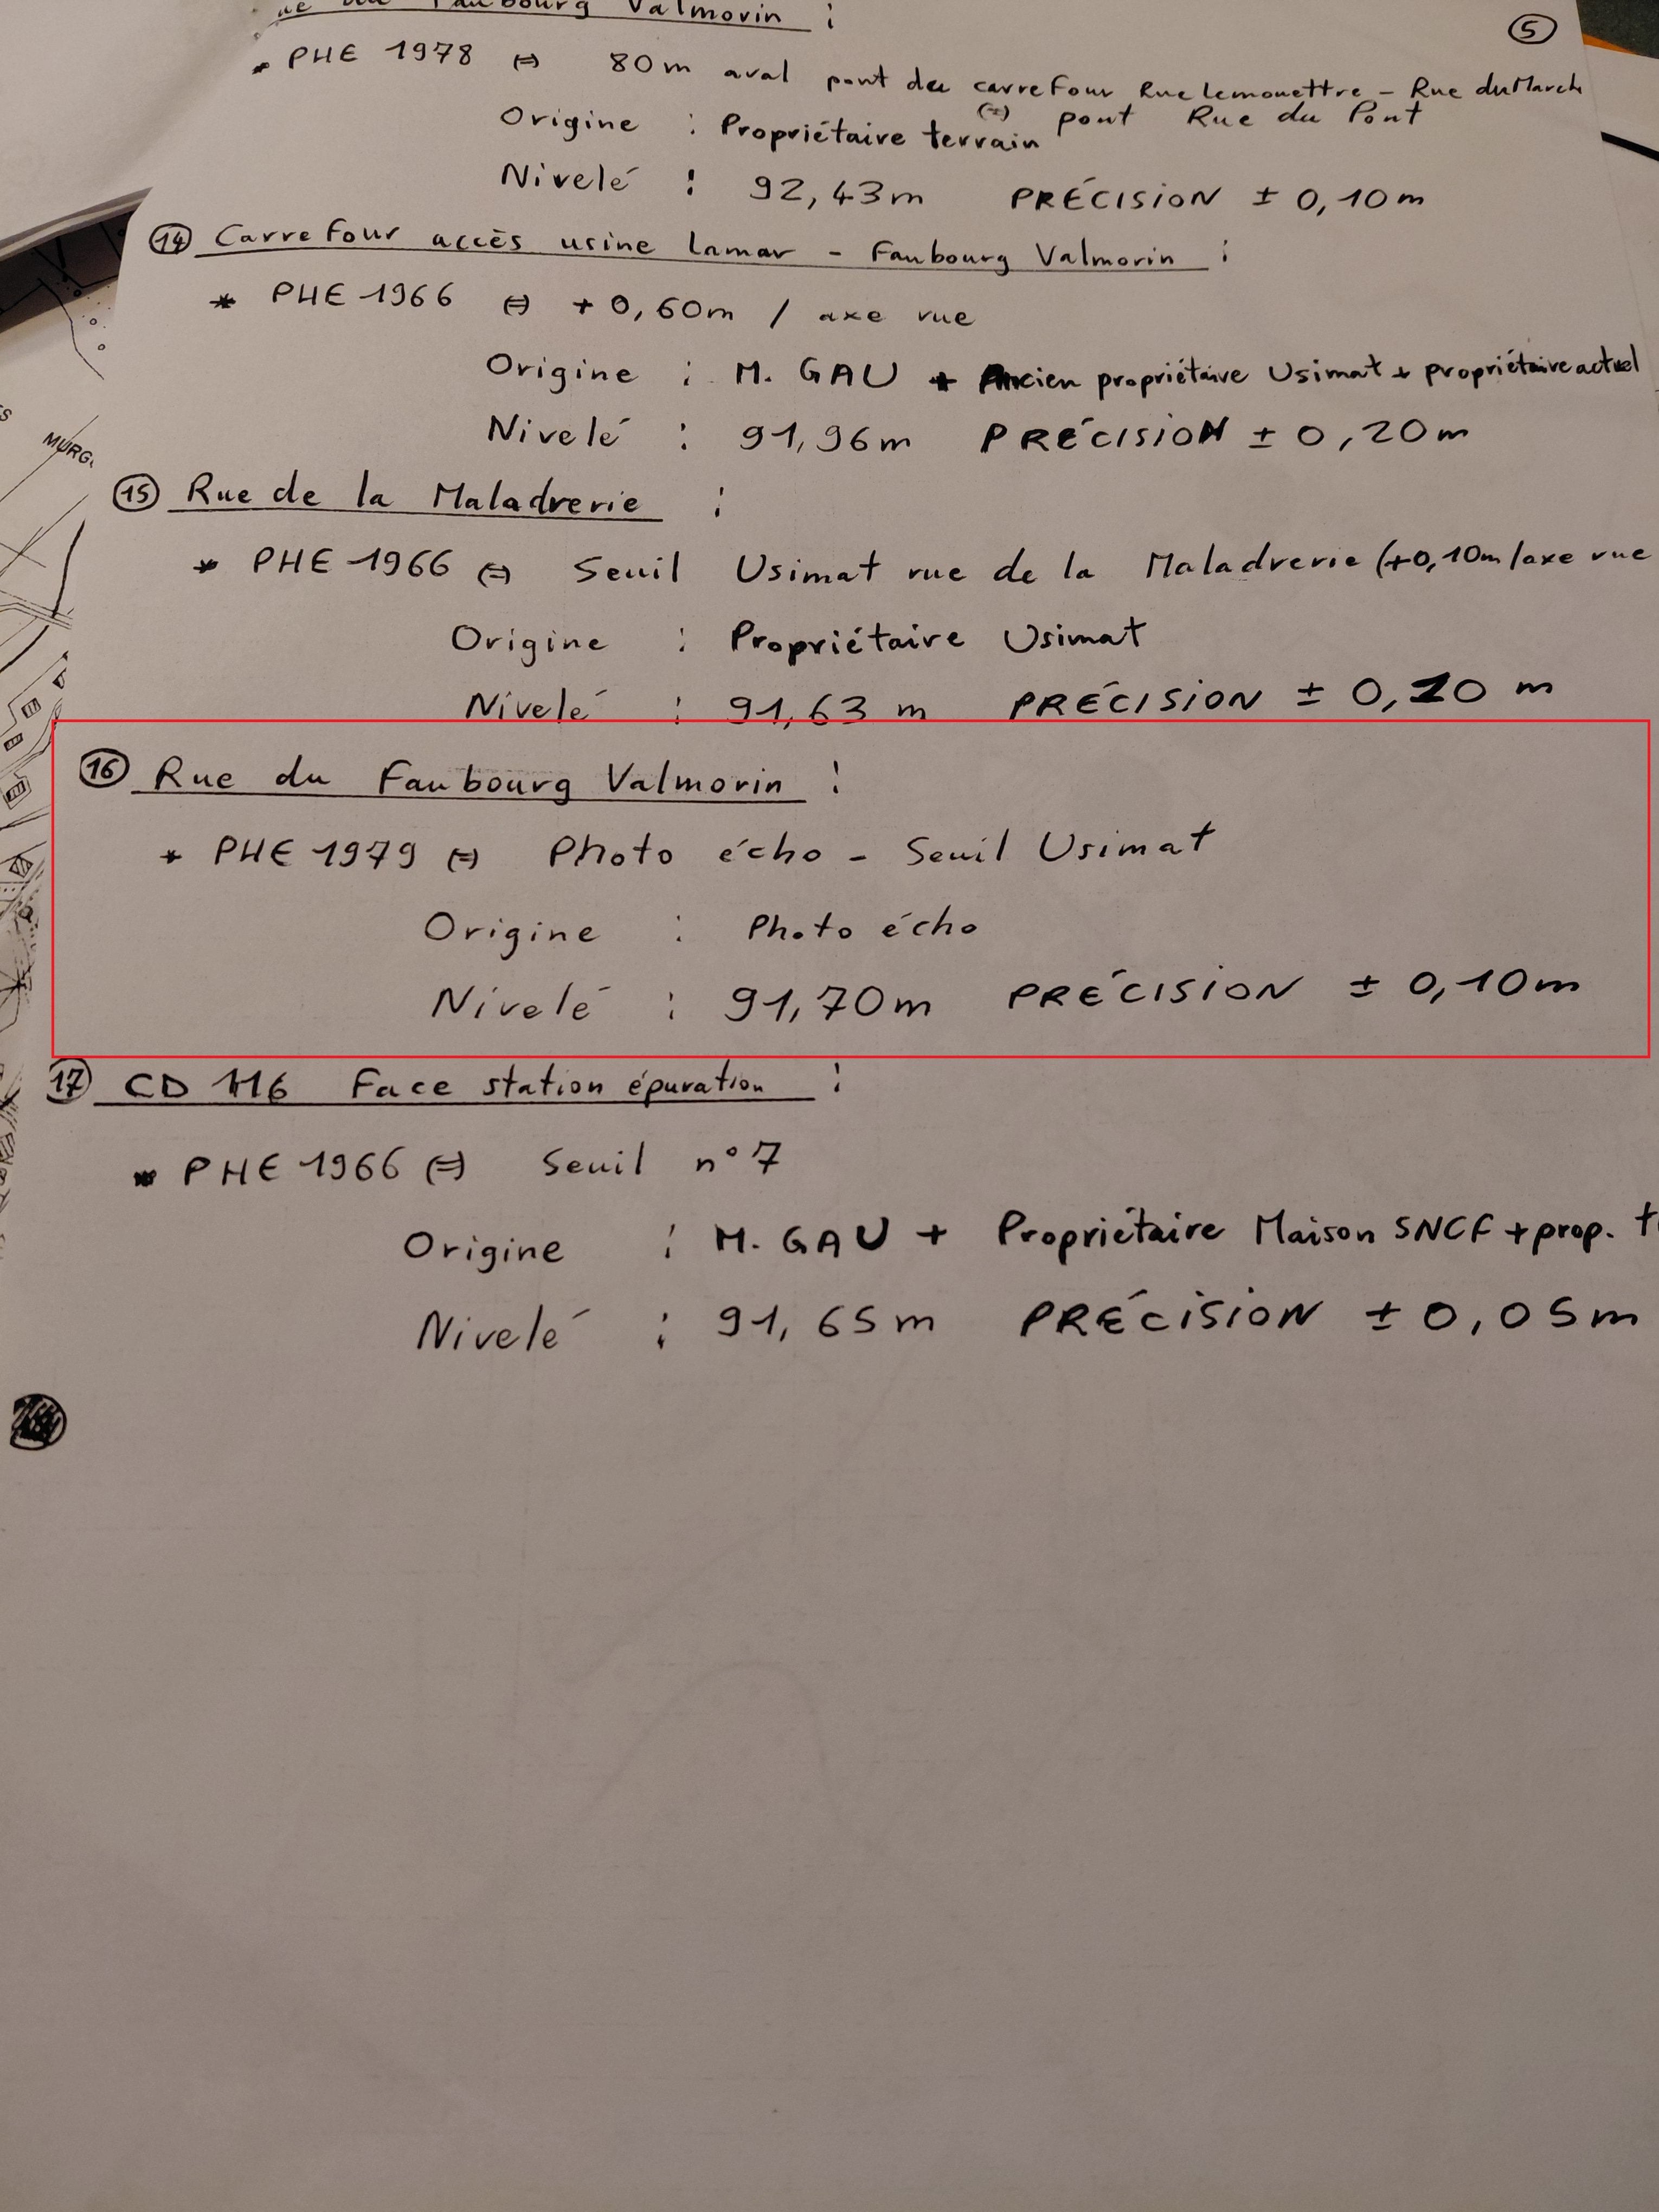 Faubourg Valmorin :
⑤
* PHE 1978 (=) 80m aval pont du carrefour Rue Lemouettre - Rue du March
(=) pont Rue du Pont
Origine : Propriétaire terrain
Nivelé : 92,43m PRÉCISION ± 0,10m
⑭ Carrefour accès usine Lamar - Faubourg Valmorin :
* PHE 1966 (=) + 0,60m / axe rue
Origine : M. GAU + Ancien propriétaire Usimat + propriétaire actuel
Nivelé : 91,96m PRÉCISION ± 0,20m
⑮ Rue de la Maladrerie :
* PHE 1966 (=) Seuil Usimat rue de la Maladrerie (+0,10m/axe rue
Origine : Propriétaire Usimat
Nivelé : 91,63 m PRÉCISION ± 0,20 m
⑯ Rue du Faubourg Valmorin :
* PHE 1979 (=) Photo écho - Seuil Usimat
Origine : Photo écho
Nivelé : 91,70m PRÉCISION ± 0,10m
⑰ CD 116 Face station épuration :
* PHE 1966 (=) Seuil n° 7
Origine : M. GAU + Propriétaire Maison SNCF + prop. t
Nivelé : 91,65m PRÉCISION ± 0,05m
MURG